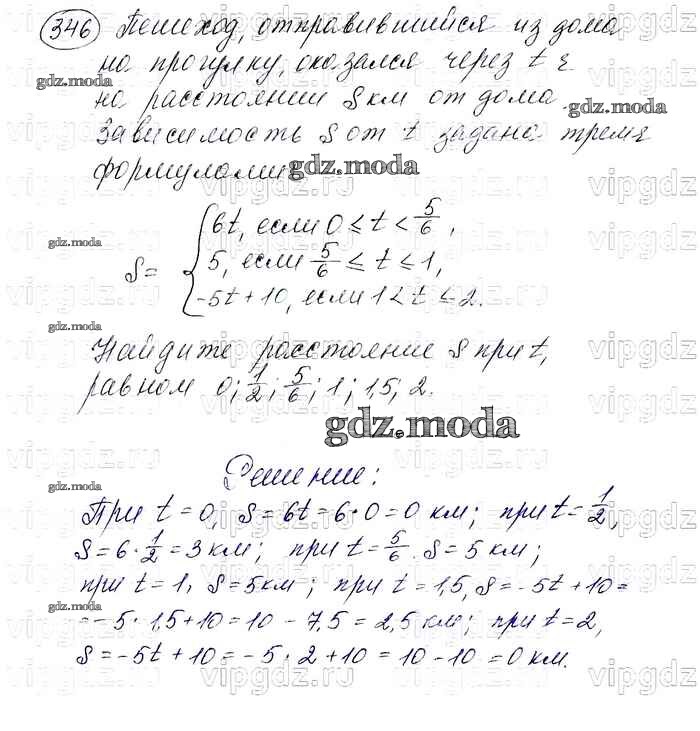 346 Пешеход, отправившийся из дома
на прогулку, оказался через t ч
на расстоянии S км от дома.
Зависимость S от t задана тремя
формулами
S = { 6t, если 0 ≤ t < 5/6,
5, если 5/6 ≤ t ≤ 1,
-5t + 10, если 1 < t ≤ 2.
Найдите расстояние S при t,
равном 0; 1/2; 5/6; 1; 1,5; 2.
gdz.moda
Решение:
При t = 0, S = 6t = 6·0 = 0 км; при t = 1/2,
S = 6·1/2 = 3 км; при t = 5/6 S = 5 км;
при t = 1, S = 5 км; при t = 1,5, S = -5t + 10 =
= -5·1,5 + 10 = 10 - 7,5 = 2,5 км; при t = 2,
S = -5t + 10 = -5·2 + 10 = 10 - 10 = 0 км.
gdz.moda
gdz.moda
gdz.moda
gdz.moda
gdz.moda
gdz.moda
gdz.moda
vipgdz.ru